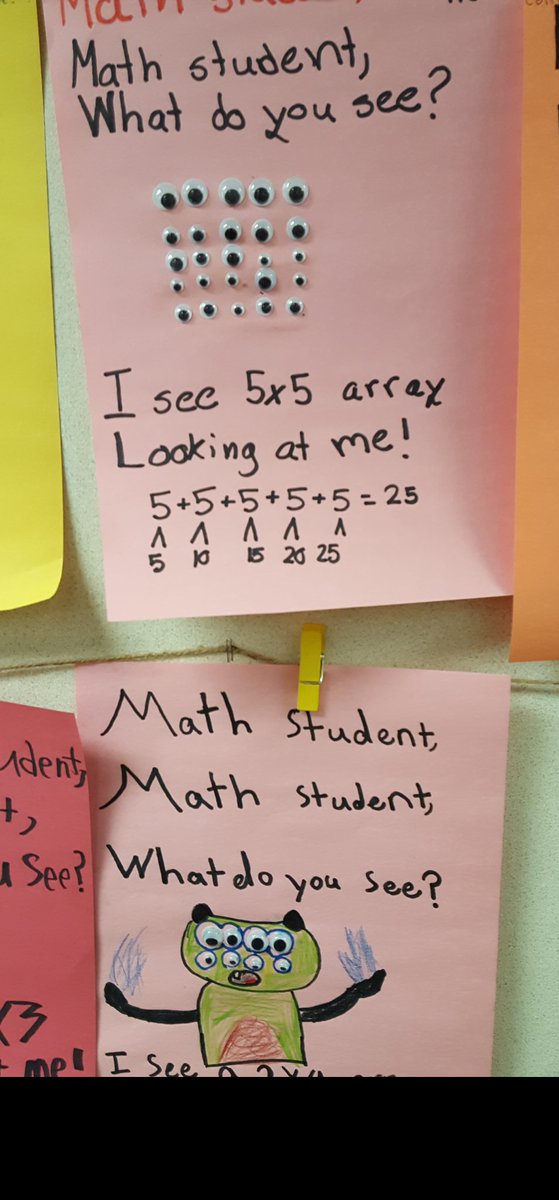 Math student,
Math student,
What do you see?
I see 5x5 array
Looking at me!
5+5+5+5+5=25
5 10 15 20 25
Math Student,
Math student,
What do you see?
udent,
t,
u See?
x3
t me!
I See a 2x4